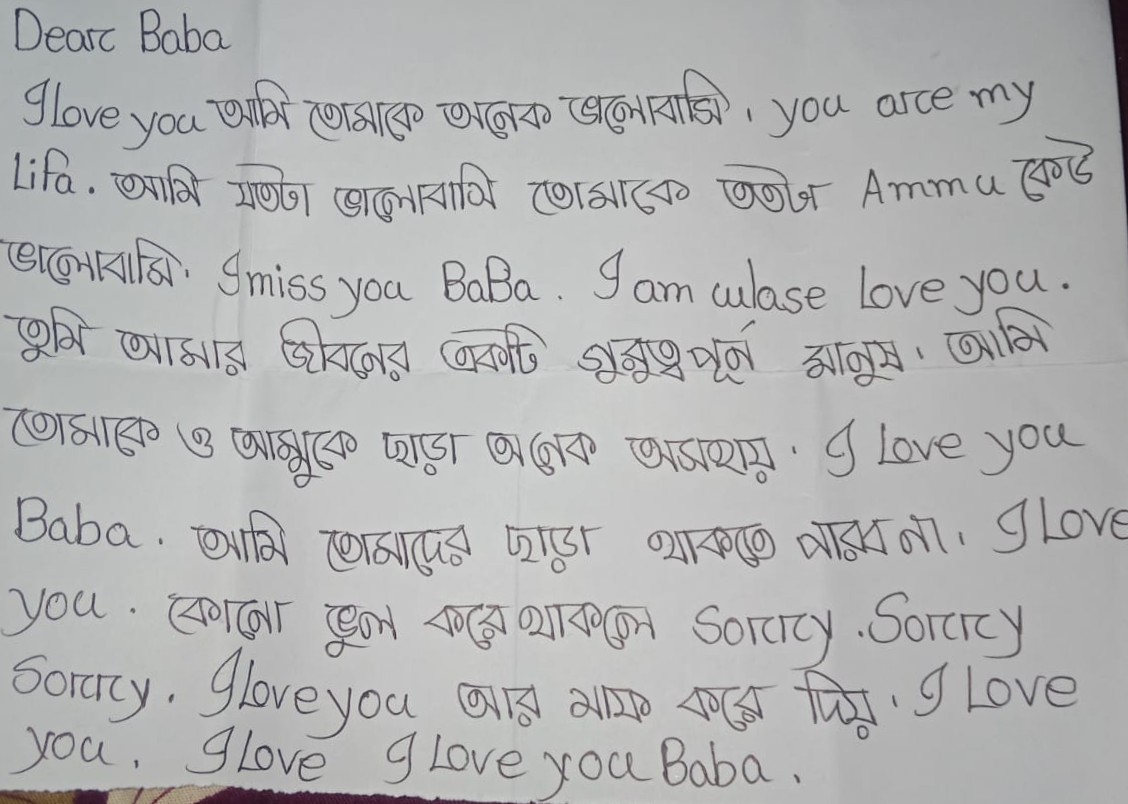 Dear Baba
I Love you আমি তোমাকে অনেক ভালোবাসি. you are my
Lifa. আমি যতটা ভালোবাসি তোমাকে ততটা Ammu কেউ
ভালোবাসি. I miss you BaBa. I am Love you.
তুমি আমার জীবনের একটি গুরুত্বপূর্ন মানুষ. আমি
তোমাকে ও আম্মুকে ছাড়া অনেক অসহায়. I Love you
Baba. আমি তোমাদের ছাড়া থাকতে পারব না. I Love
you. কোনো ভুল করে থাকলে Sorry. Sorry
Sorry. I Love you আর মাফ করে দিয়. I Love
you. I Love I Love you Baba.